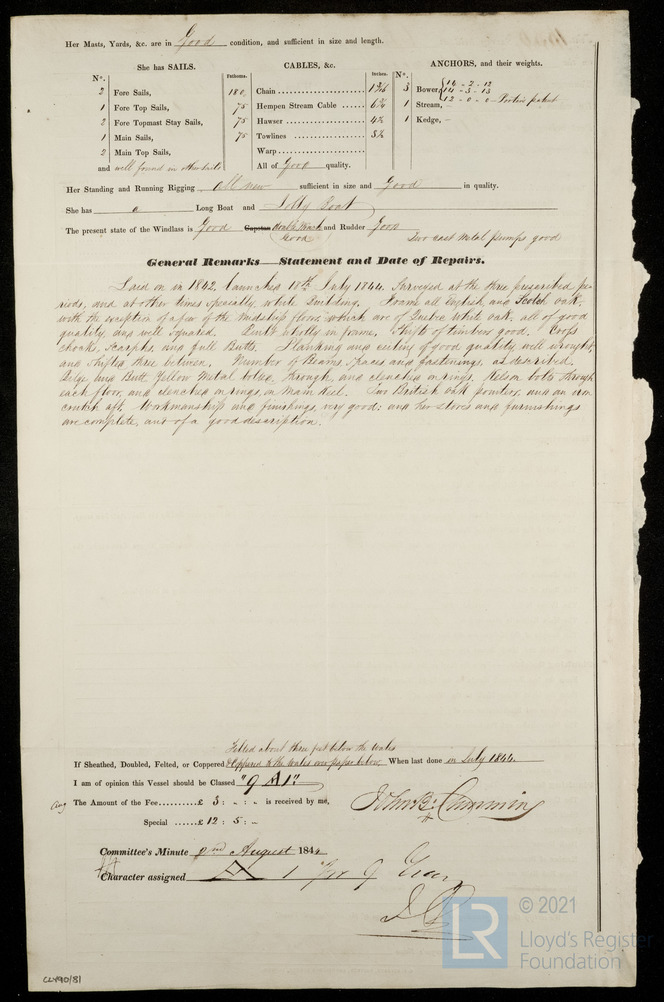 Her Masts, Yards, &c. are in Good condition, and sufficient in size and length.
She has SAILS.
CABLES, &c.
ANCHORS, and their weights.
No.
Fathoms.
Inches.
No.
2 Fore Sails,
1 Fore Top Sails,
2 Fore Topmast Stay Sails,
1 Main Sails,
2 Main Top Sails,
and well found in other sails
180 Chain
75 Hempen Stream Cable
75 Hawser
75 Towlines
Warp
All of Good quality.
3 Bower, 14 - 2 - 12
14 - 3 - 13
12 - 0 - 0 - Porters patent
1 Stream,
1 Kedge,
Her Standing and Running Rigging all new sufficient in size and Good in quality.
She has a Long Boat and Jolly Boat
The present state of the Windlass is Good Capstan and Rudder Good
Good
Two cast Metal pumps good
General Remarks—Statement and Date of Repairs.
Laid on in 1842. Launched 18th July 1844. Surveyed at the three prescribed pe-
riods, and at other times specially, while Building. Frame all English, and Scotch oak,
with the exception of a few of the Midship floors, which are of Quebec White oak, all of good
quality, and well squared. Built wholly in frame. Shifts of timbers good. Crops
choaks, Scarphs, and full Butts. Planking and ceiling of good quality, well wrought,
and shifted three between. Number of Beams, Spaces and fastenings, as described.
Bilge and Butt Yellow Metal bolted, through, and clenched on rings. Kelson bolts through
each floor, and clenched on rings, on Main Keel. Two British oak pointers, and an iron
crutch aft. Workmanship and finishings, very good: and her stores and furnishings
are complete, and of a good description.
Felted about three feet below the Wales
If Sheathed, Doubled, Felted, or Coppered Coppered to the Wales over paper below When last done in July 1844.
I am of opinion this Vessel should be Classed "9 A 1"
Aug The Amount of the Fee £ 3 : „ : „ is received by me,
Special £ 12 : 5 : „
John B. Cumming
Committee's Minute 2nd August 1844
Character assigned A 1 for 9 Years
© 2021
LR
Lloyd's Register
Foundation
CLY90/81